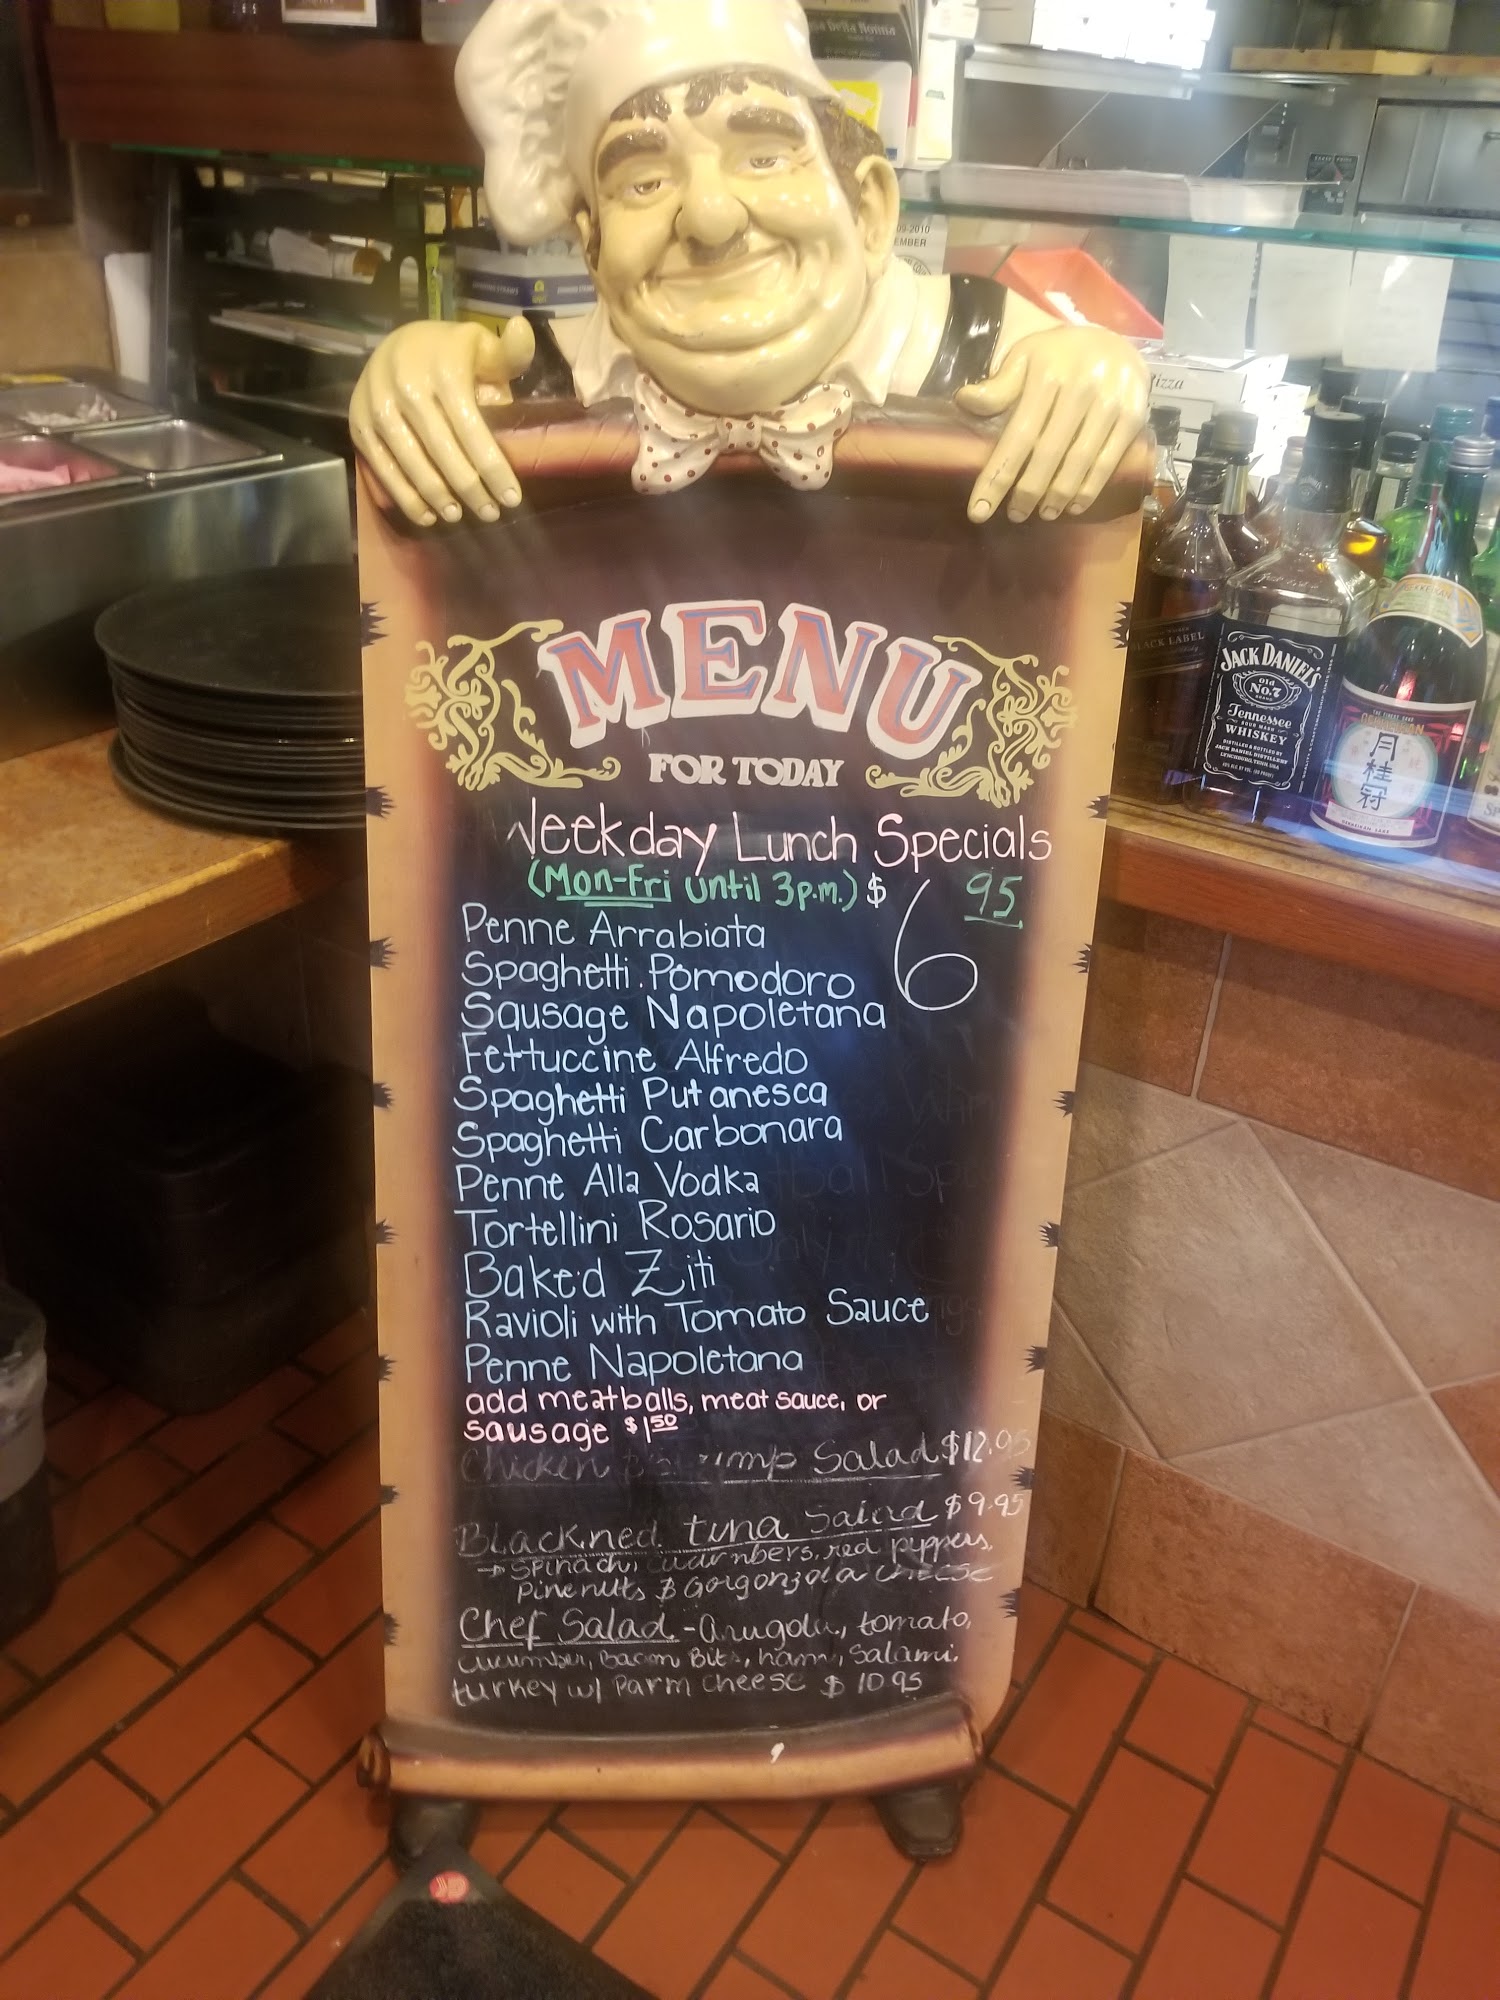 Della Nonna
09-2010
EMBER
Pizza
MENU
FOR TODAY
Weekday Lunch Specials
(Mon-Fri until 3p.m.) $6 95
Penne Arrabiata
Spaghetti Pomodoro
Sausage Napoletana
Fettuccine Alfredo
Spaghetti Putanesca
Spaghetti Carbonara
Penne Alla Vodka
Tortellini Rosario
Baked Ziti
Ravioli with Tomato Sauce
Penne Napoletana
add meatballs, meat sauce, or
sausage $1 50
Chicken Salad $12.95
Blackned tuna Salad $9.95
→ Spinach, cucumbers, red peppers,
pinenuts & Gorgonzola CHEESE
Chef Salad - Arugola, tomato,
cucumber, Bacon Bits, ham, Salami,
turkey w/ Parm cheese $10 95
BLACK LABEL
JACK DANIEL'S
Old
No.7
Tennessee
SOUR MASH
WHISKEY
DISTILLED & BOTTLED BY
JACK DANIEL DISTILLERY
LYNCHBURG, TENN. USA
THE FINEST SAKE
GEKKEIKAN
月桂冠